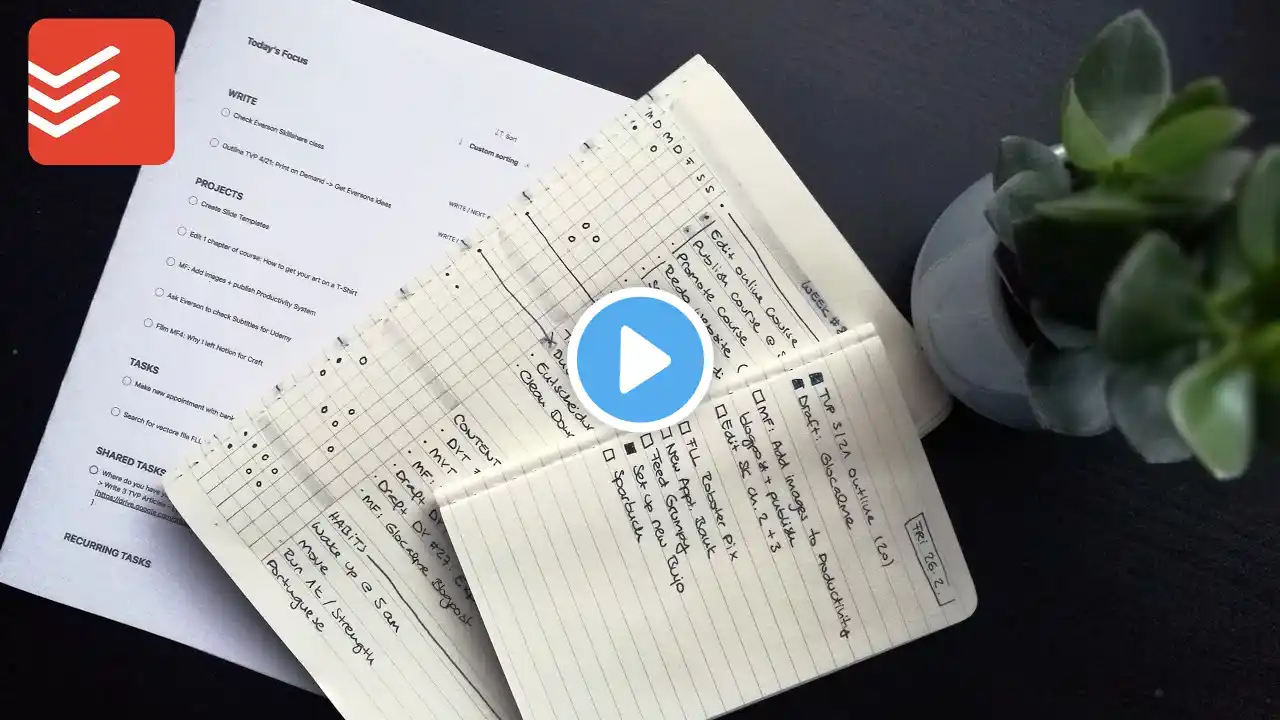 Today's Focus
WRITE
Check Everson Skillshare class
Outline TVP 4/21: Print on Demand -> Get Eversons ideas
↓↑ Sort
Custom sorting
WRITE / NEXT
WRITE /
PROJECTS
Create Slide Templates
Edit 1 chapter of course: How to get your art on a T-Shirt
MF: Add images + publish Productivity System
Ask Everson to check Subtitles for Udemy
Film MF4: Why I left Notion for Craft
TASKS
Make new appointment with bank
Search for vectore file FLL
SHARED TASKS
Where do you have
> Write 3 TVP Articles -
(https://drive.google.com/
)
RECURRING TASKS
M D M D F S S
WEEK #
Edit online course
Publish course @ S
Promote course (
Redo website
Clean Door
CONTENT
DYT
MYT
MF:
Draft DY
Draft DY #27: E
MF: Glocalme Blogpost
HABITS
Wake up @ 5 am
Move
Run 1E / Strength
Portuguese
FRI 26.2.
TVP 3/21 outline (20)
Draft: Glocalme
MF: Add images to productivity
blogpost + publish
Edit SC ch. 2 + 3
FLL Roboter pix
New Appt. Bank
Feed Grumpy
Set up new Bujo
Sparbuch